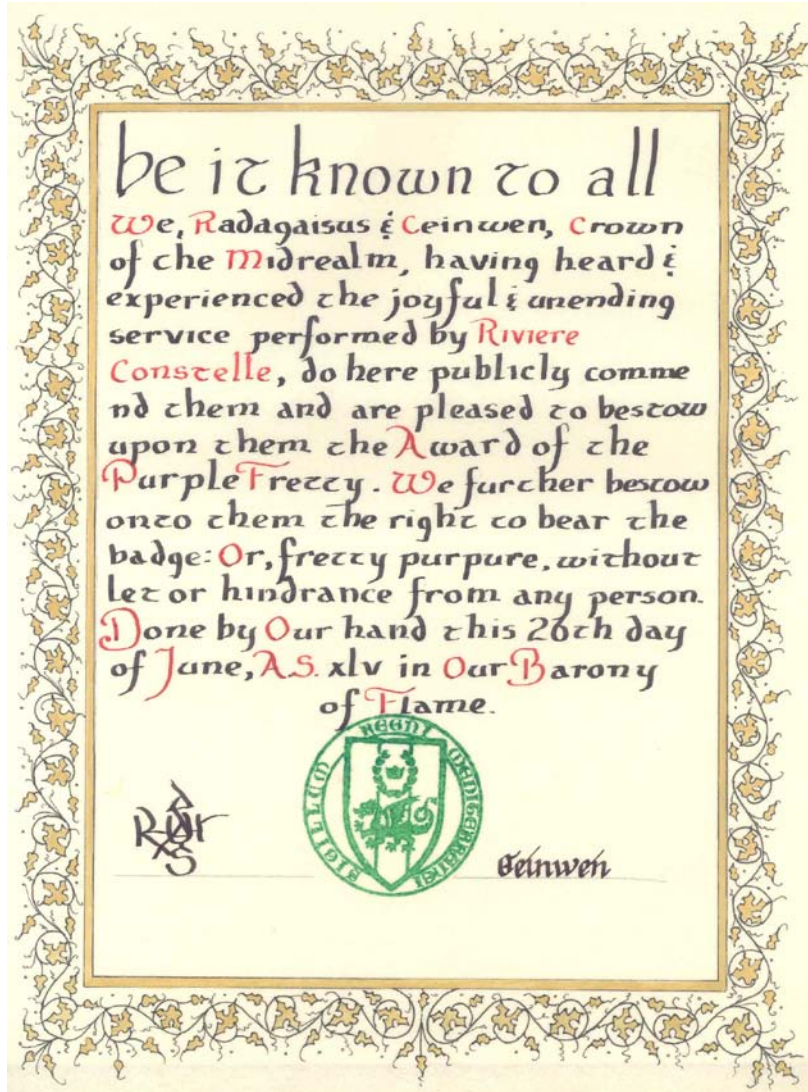 be it known to all
We, Radagaisus & Ceinwen, Crown
of the Midrealm, having heard &
experienced the joyful & unending
service performed by Riviere
Constelle, do here publicly comme
nd them and are pleased to bestow
upon them the Award of the
Purple Fretty. We further bestow
onto them the right to bear the
badge: Or, fretty purpure, without
let or hindrance from any person.
Done by Our hand this 26th day
of June, A.S. xlv in Our Barony
of Flame.
SIGILLUM
Ceinwen